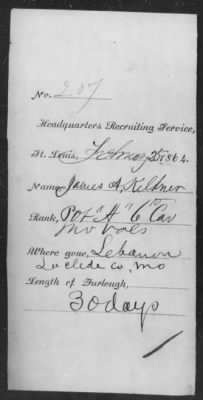 No. 207
Headquarters Recruiting Service,
St. Louis, 1864.
Name, James A.
Rank, Pvt "H" 6" Cav
Mo Vols
Where gone, Lebanon
Laclede Co. Mo
Length of Furlough,
30 days